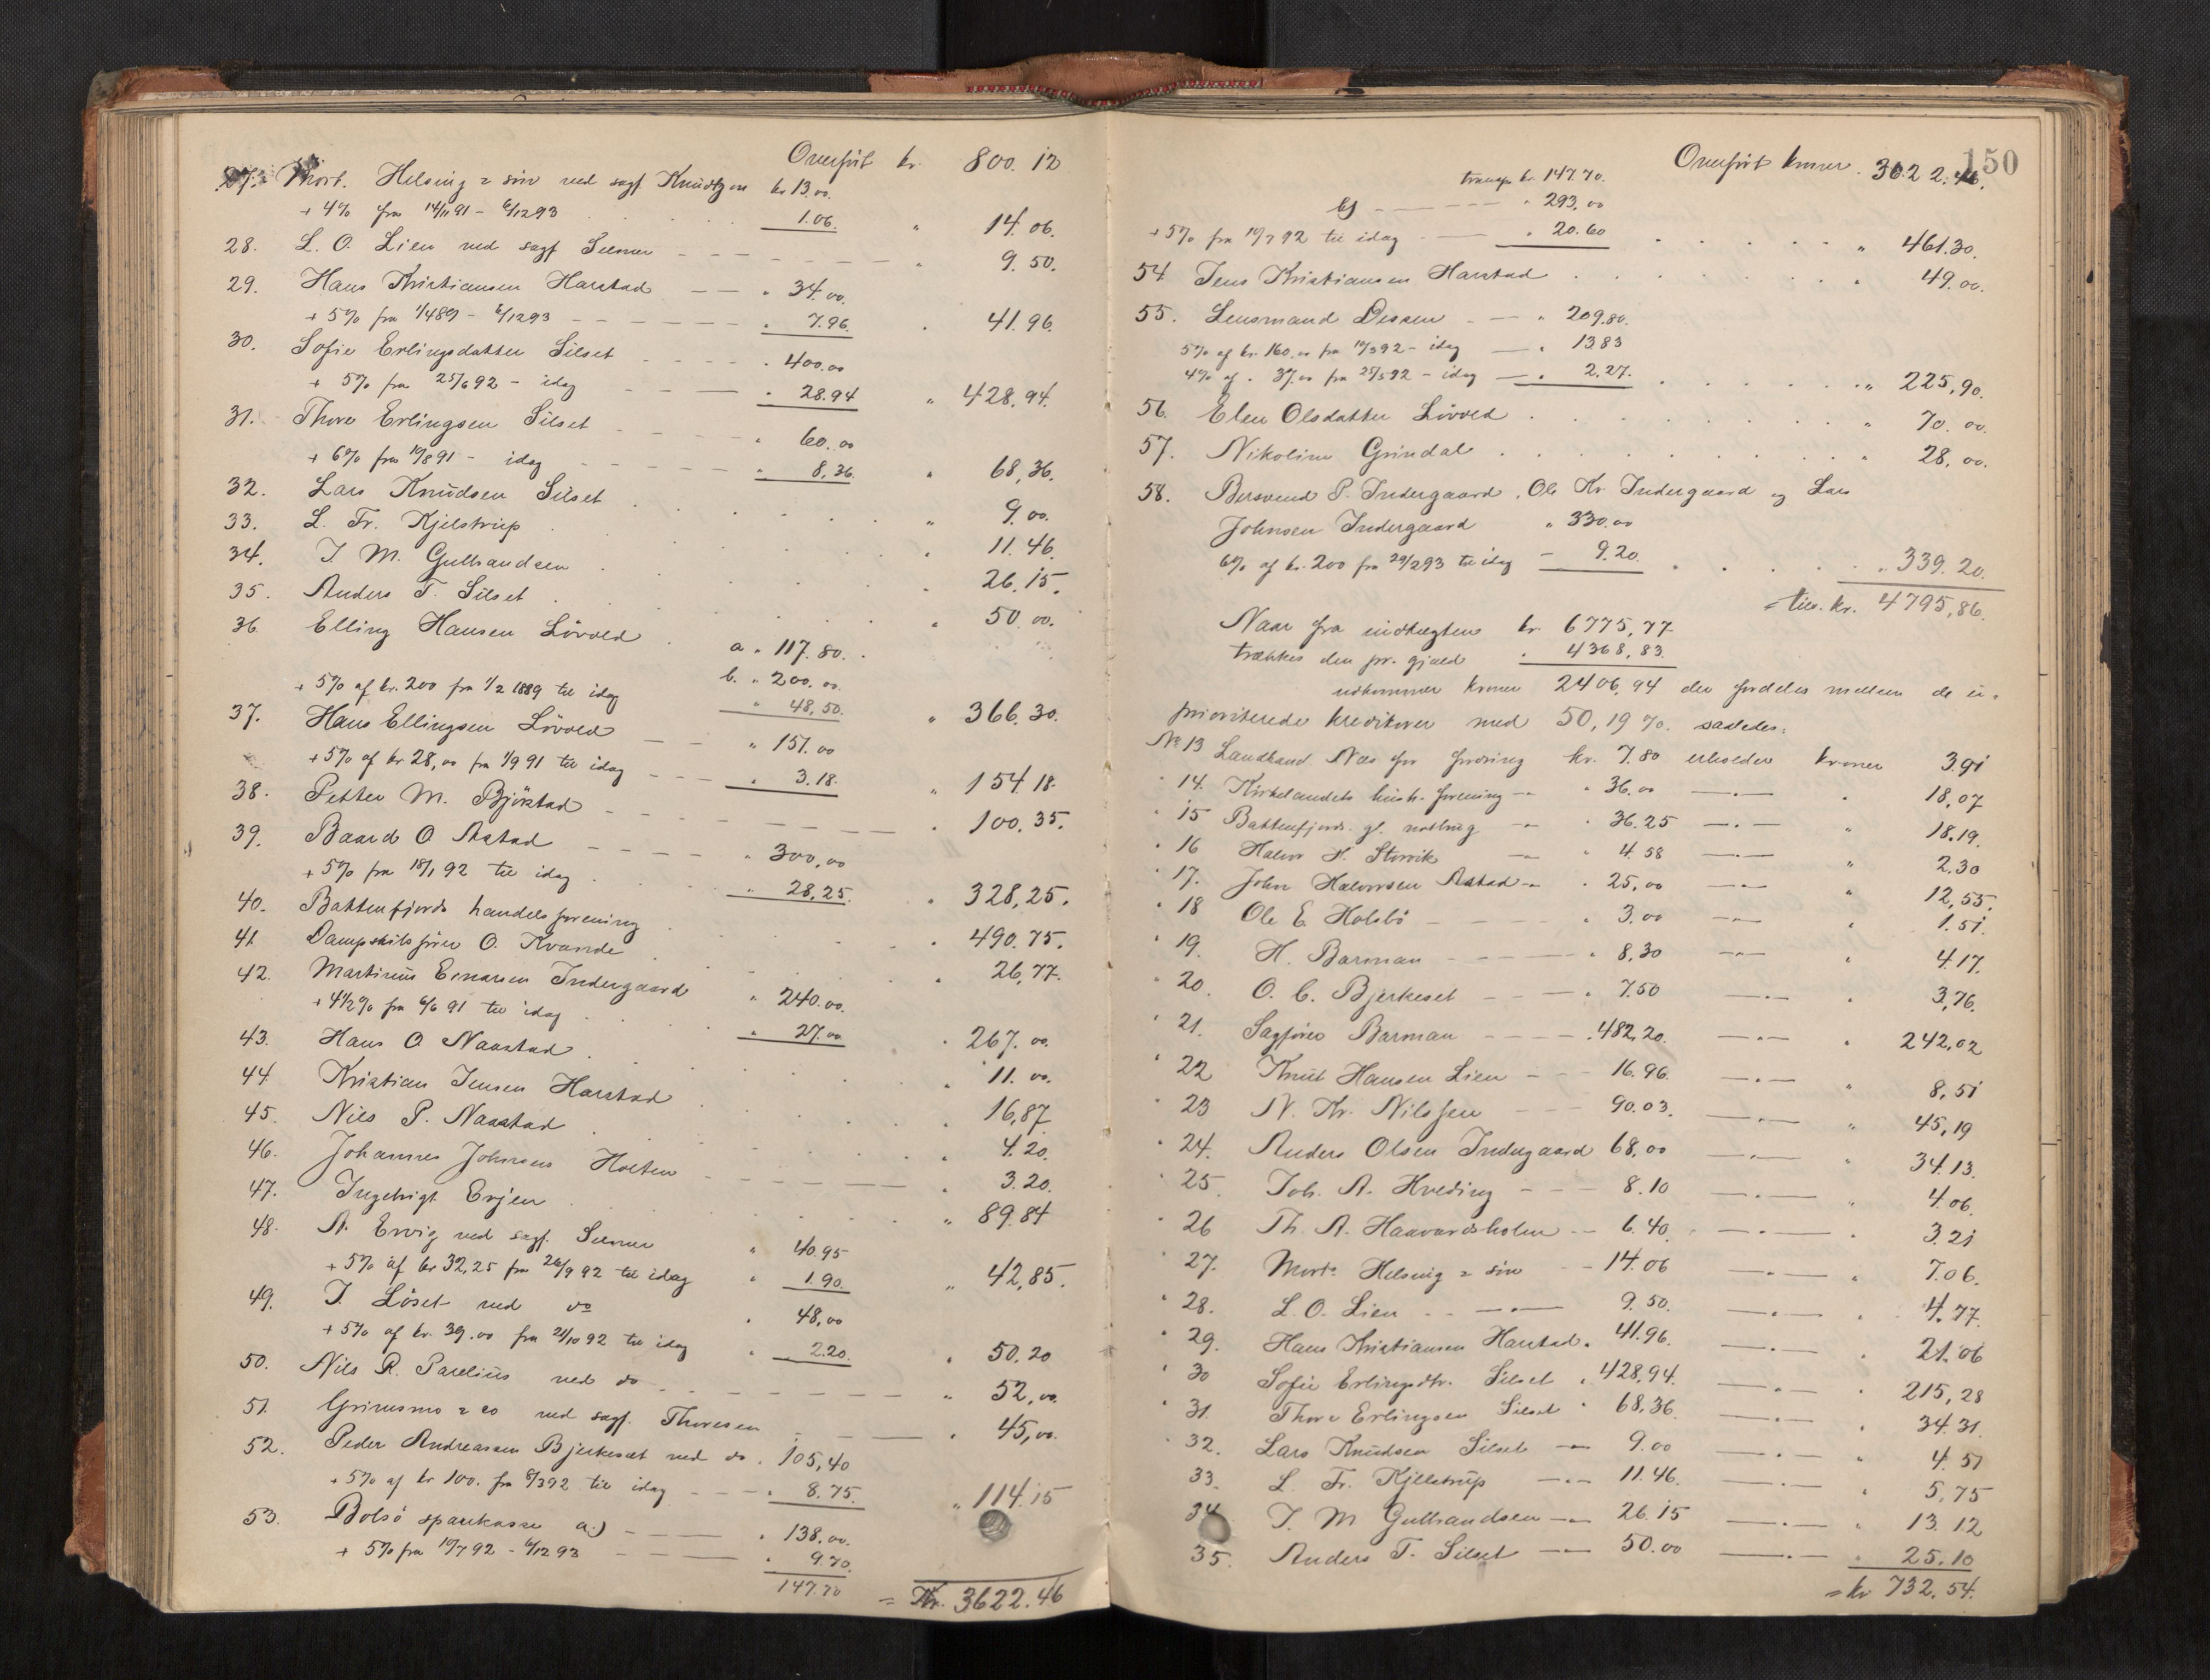 Overført kr. 800.12
27. Mort. Helsing & søn ved sagf Knudtzon kr 13.00
+ 4% fra 14/11 91 - 6/12 93 1.06. " 14.06.
28. L. O. Lien ved sagf Selmer " 9.50.
29. Hans Kristiansen Harstad " 34.00.
+ 5% fra 1/4 89 - 6/12 93 " 7.96. " 41.96.
30. Sofie Erlingsdatter Silset " 400.00
+ 5% fra 25/6 92 - idag " 28.94 " 428,94.
31. Thore Erlingsen Silset " 60.00
+ 6% fra 10/8 91 - idag " 8,36. " 68,36.
32. Lars Knudsen Silset " 9.00.
33. L. Fr. Kjelstrup " 11.46.
34. J. M. Gulbrandsen " 26.15.
35. Anders T. Silset " 50.00.
36. Elling Hansen Løvold a " 117.80.
b. " 200.00.
+ 5% af kr. 200 fra 1/2 1889 til idag " 48,50. " 366.30.
37. Hans Ellingsen Løvold " 151.00
+ 5% af kr 28,00 fra 1/9 91 til idag " 3.18. " 154.18.
38. Petter M. Bjørstad " 100.35.
39. Baard O Aastad " 300,00
+ 5% fra 18/1 92 til idag " 28,25. " 328,25.
40. Battenfjords handelsforening " 490.75.
41. Dampskibsfører O. Kvande " 26,77.
42. Martinus Einarsen Indergaard " 240.00.
+ 4 1/2 % fra 6/6 91 til idag " 27.00 " 267.00.
43. Hans O Naastad " 11.00.
44. Kristian Jensen Harstad " 16,87
45. Nils P. Naastad " 4.20.
46. Johannes Johnsens Holten " 3.20.
47. Ingebrigt Evjen " 89.84
48. A. Ervig ved sagf. Selmer " 40.95
+ 5% af kr 32,25 fra 26/9 92 til idag " 1.90. " 42,85.
49. J. Løset ved do " 48,00
+ 5% af kr. 39.00 fra 21/10 92 til idag " 2.20. " 50.20
50. Nils R. Parelius ved do " 52,00.
51. Grimsmo & co ved sagf. Thoresen " 45,00.
52. Peder Andreassen Bjerkeset ved do " 105,40
+ 5% af kr 100. fra 8/3 92 til idag " 8.75. " 114.15
53. Bolsø sparekasse a.) " 138.00.
+ 5% fra 10/7 92 - 6/12 93 " 9.70.
147.70 = Kr. 3622.46
150
Overført kroner. 3622.46.
transp kr. 147.70.
b) " 293.00
+ 5% fra 10/7 92 til idag " 20.60 " 461.30.
54 Jens Kristiansen Harstad " 49.00.
55. Lensmand Dessen " 209.80.
5% af kr. 160.00 fra 10/3 92 - idag " 13.83
4% af " 37.00 fra 25/5 92 - idag " 2.27. " 225,90.
56. Elen Olsdatter Løvold " 70.00.
57. Nikoline Grindal " 28,00.
58. Bersvend P. Indergaard, Ole Kr. Indergaard og Lars
Johnsen Indergaard " 330.00
6% af kr. 200 fra 29/2 93 til idag - 9.20. " 339.20.
= tils. kr. 4795,86.
Naar fra indtægten kr. 6775,77
trækkes den pr. gjæld " 4368,83.
udkommer kroner 2406,94 der fordeles mellem de u-
prioriterede kreditorer med 50,19 %. saaledes:
No 13 Landhand. Næs for fordring kr. 7.80 erholder kroner 3.91
" 14. Kirkelandets hush. forening " 36.00 " 18,07
" 15 Battenfjords. gl. notbrug " 36.25 " 18.19.
" 16 Halvor H. Storvik " 4.58 " 2.30
" 17. John Halvorsen Aastad " 25,00 " 12,55.
" 18 Ole E. Holsbø " 3.00 " 1.51.
" 19. H. Barman " 8,30 " 4.17.
" 20. O. C. Bjerkeset " 7.50 " 3,76.
" 21. Sagfører Barman " 482,20. " 242,02
" 22 Knut Hansen Lien 16.96. " 8,51
" 23 N. Kr. Nilssen 90.03. " 45,19
" 24. Anders Olsen Indergaard 68,00 " 34.13.
" 25. Joh. A. Hveding 8.10 " 4.06.
" 26 Th. A. Haavardsholm 6.40. " 3.21
" 27. Mort. Helsing & søn 14.06 " 7.06.
" 28. L. O. Lien 9.50. " 4.77.
" 29. Hans Kristiansen Harstad " 41.96. " 21.06
" 30 Sofie Erlingsdtr. Silset " 428,94. " 215,28
" 31. Thore Erlingsen Silset " 68,36. " 34.31.
" 32. Lars Knudsen Silset 9.00 " 4.51
33. L. Fr. Kjelstrup 11.46. " 5,75
34. J. M Gulbrandsen 26.15 " 13.12
35. Anders T. Silset 50.00 " 25.10
= kr 732.54.